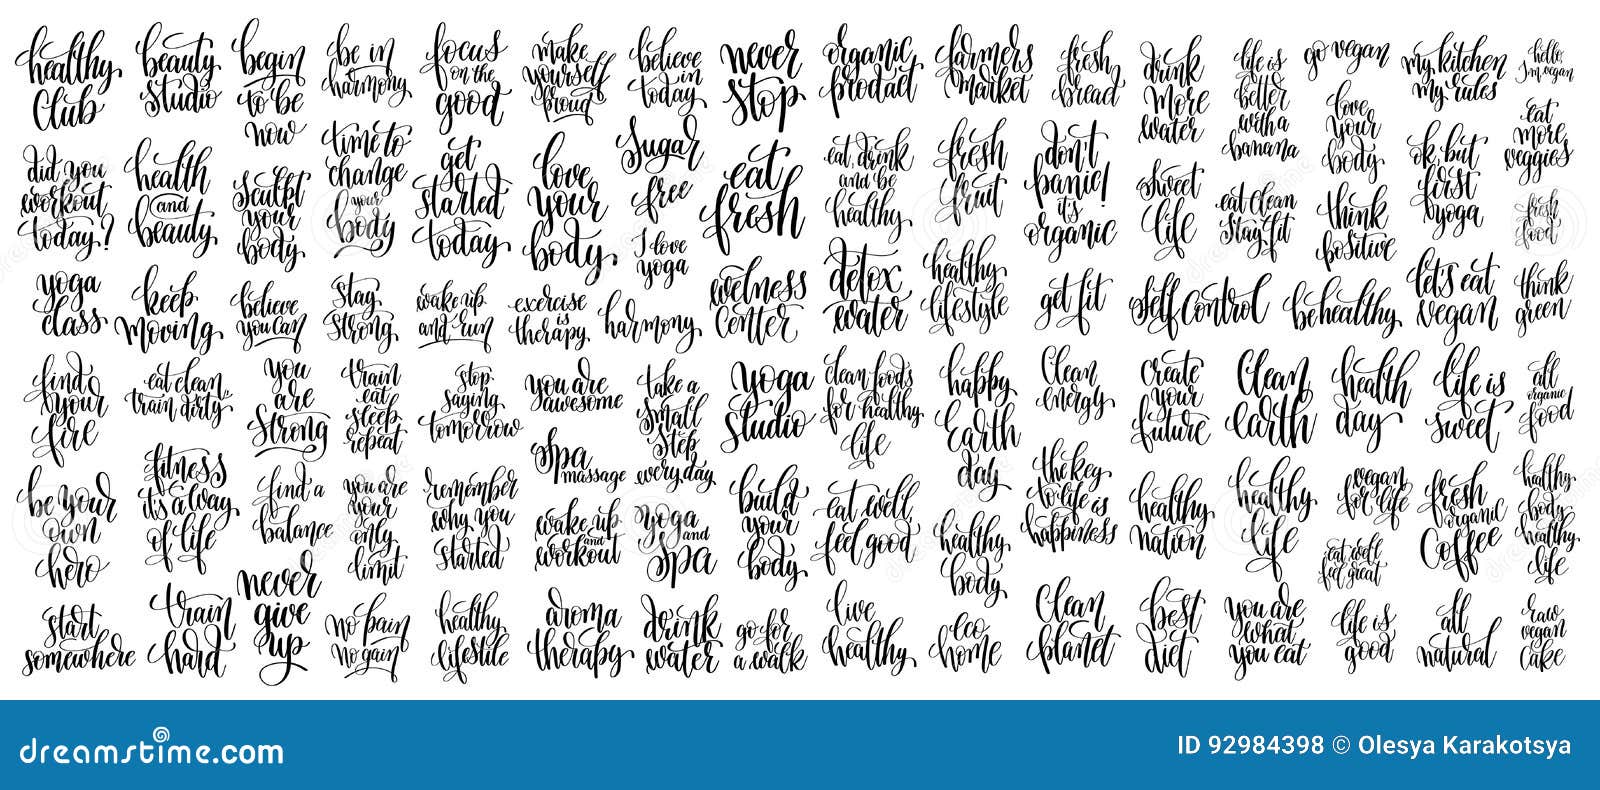 healthy
Club
did you
workout
today?
yoga
class
find
your
fire
be your
own
hero
start
somewhere
beauty
studio
health
and
beauty
keep
moving
eat clean,
train dirty
fitness
it's a way
of life
train
hard
begin
to be
now
sculpt
your
body
believe
you can
you
are
strong
find a
balance
never
give
up
be in
harmony
time to
change
your
body
stay
strong
train
eat
sleep
repeat
you are
your
only
limit
no pain
no gain
focus
on the
good
get
started
today
wake up
and run
stop
saying
tomorrow
remember
why you
started
healthy
lifestile
make
yourself
proud
love
your
body
exercise
is
therapy
you are
awesome
spa
massage
wake up
and
workout
aroma
therapy
believe
in
today
sugar
free
I love
yoga
harmony
take a
small
step
every day
yoga
and
spa
drink
water
never
stop
eat
fresh
welness
center
yoga
studio
build
your
body
go for
a walk
organic
product
eat, drink
and be
healthy
detox
water
clean foods
for healthy
life
eat well,
feel good
live
healthy
farmers
market
fresh
fruit
healthy
lifestyle
happy
Earth
day
healthy
body
eco
home
fresh
bread
don't
panic!
it's
organic
get fit
Clean
energy
the key
to life is
happiness
Clean
planet
drink
more
water
sweet
life
self Control
create
your
future
healthy
nation
best
diet
life is
better
with a
banana
eat clean
stay fit
Clean
earth
healthy
life
you are
what
you eat
go vegan
love
your
body
think
positive
be healthy
health
day
vegan
for life
eat well
feel great
life is
good
my kitchen
my rules
ok, but
first
yoga
let's eat
vegan
life is
sweet
fresh
organic
Coffee
all
natural
hello,
I'm vegan
eat
more
veggies
fresh
food
think
green
all
organic
food
healthy
body
healthy
life
raw
vegan
cake
dreamstime.com
ID 92984398 © Olesya Karakotsya